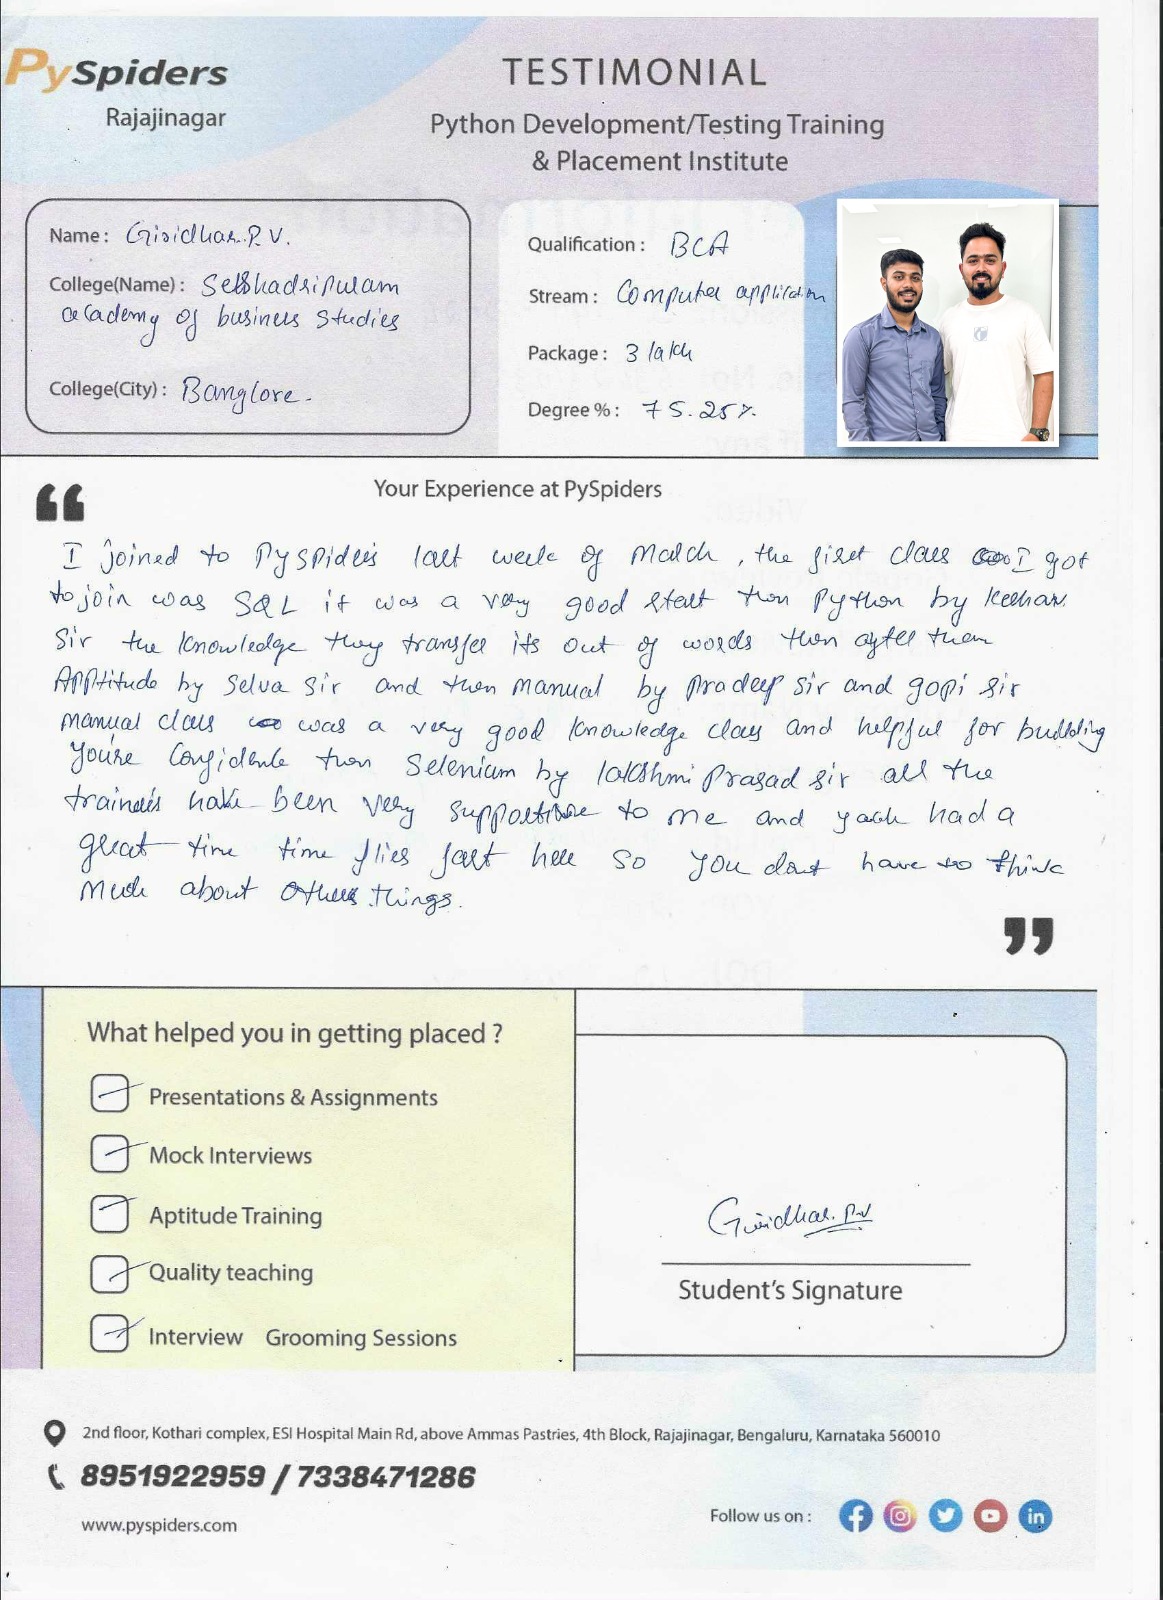 PySpiders
Rajajinagar
TESTIMONIAL
Python Development/Testing Training
& Placement Institute
Name : Giridhar.P.V.
College(Name) : Seshadripuram
academy of business studies
College(City) : Banglore.
Qualification : BCA
Stream : Computer application
Package : 3 lakh
Degree % : 75.25%.
Your Experience at PySpiders
I joined to Pyspiders last week of March, the first class I got
to join was SQL it was a very good start then Python by
Sir the knowledge they transfer its out of words then after then
Apptitude by Selva sir and then manual by pradeep sir and gopi sir
manual class was a very good knowledge class and helpful for building
you're then Selenium by lakshmi prasad sir all the
have been very supportive to me and had a
great time time flies fast here so you dont have to think
much about others things.
What helped you in getting placed ?
Presentations & Assignments
Mock Interviews
Aptitude Training
Quality teaching
Interview Grooming Sessions
Giridhar.P.V
Student's Signature
2nd floor, Kothari complex, ESI Hospital Main Rd, above Ammas Pastries, 4th Block, Rajajinagar, Bengaluru, Karnataka 560010
8951922959 / 7338471286
www.pyspiders.com
Follow us on :